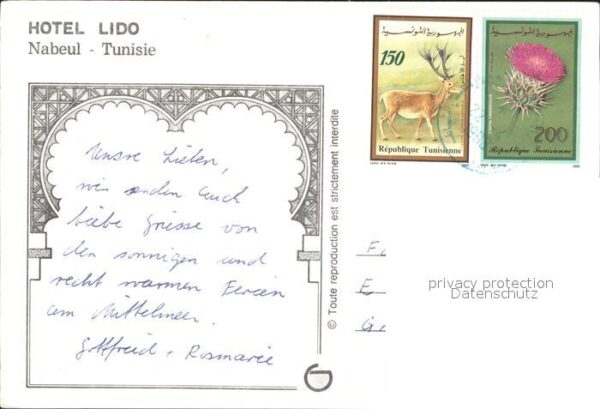 HOTEL LIDO
Nabeul - Tunisie
الجمهورية التونسية
150
République Tunisienne
الجمهورية التونسية
200
République Tunisienne
© Toute reproduction est strictement interdite
Unsre Lieben,
wir senden Euch
liebe Grüsse von
den sonnigen und
recht warmen Ferien
am Mittelmeer.
Gottfried + Rosmarie
F
E
G
privacy protection
Datenschutz